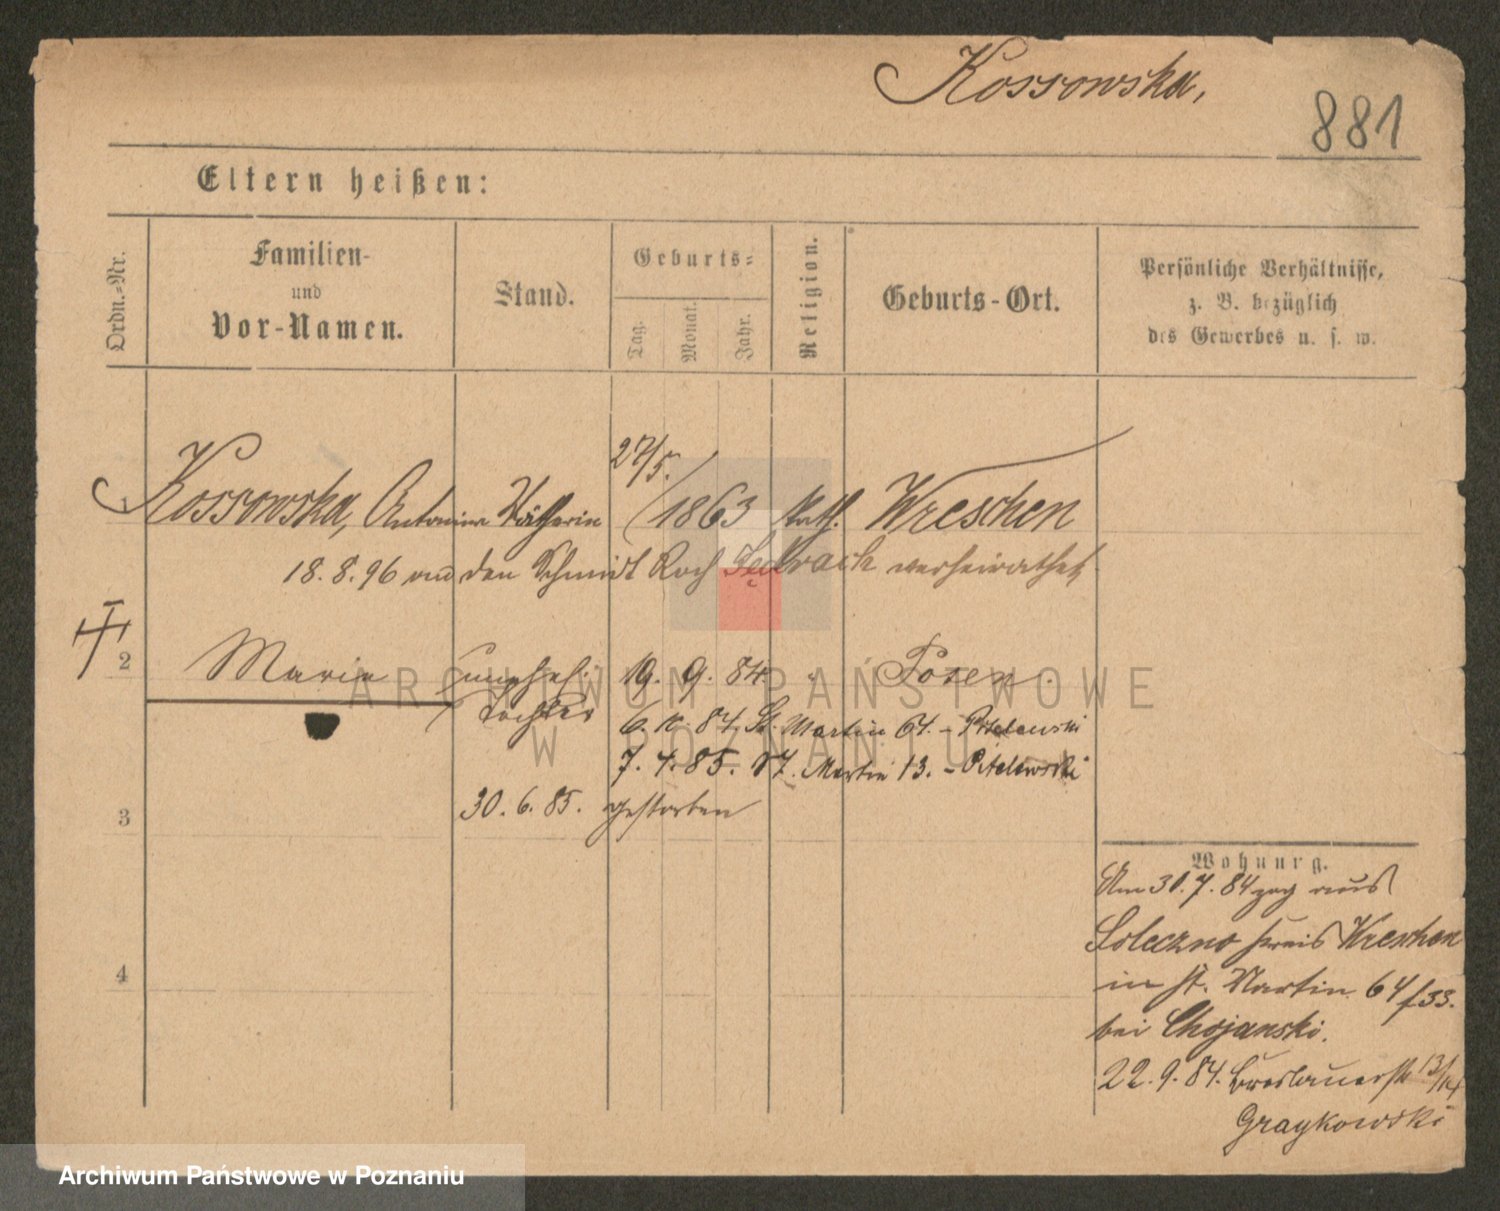 Kossowska,
881
Eltern heißen:
Ordn.-Nr.
Familien-
und
Vor-Namen.
Stand.
Geburts-
Tag.
Monat.
Jahr.
Religion.
Geburts-Ort.
Persönliche Verhältnisse,
z. B. bezüglich
des Gewerbes u. s. w.
27/5.
1 Kossowska, Antonina Näherin 1863 kath. Wreschen
18. 8. 96 an den Schmidt Roch verheirathet
2 Marie unehel. 19. 9. 84. " Posen.
Tochter
6. 84 St. Martin 64. - Pitelewski
7. 4. 85. St. Martin 13. - Pitelewski
3 30. 6. 85. gestorben
Wohnung.
Am 30. 7. 84 zog aus
Soleczno Kreis Wreschen
4 in St. Martin 64
bei Chojanski.
22. 9. 84. Breslauerstr 13/14
Graykowski
ARCHIWUM PAŃSTWOWE
W POZNANIU
Archiwum Państwowe w Poznaniu